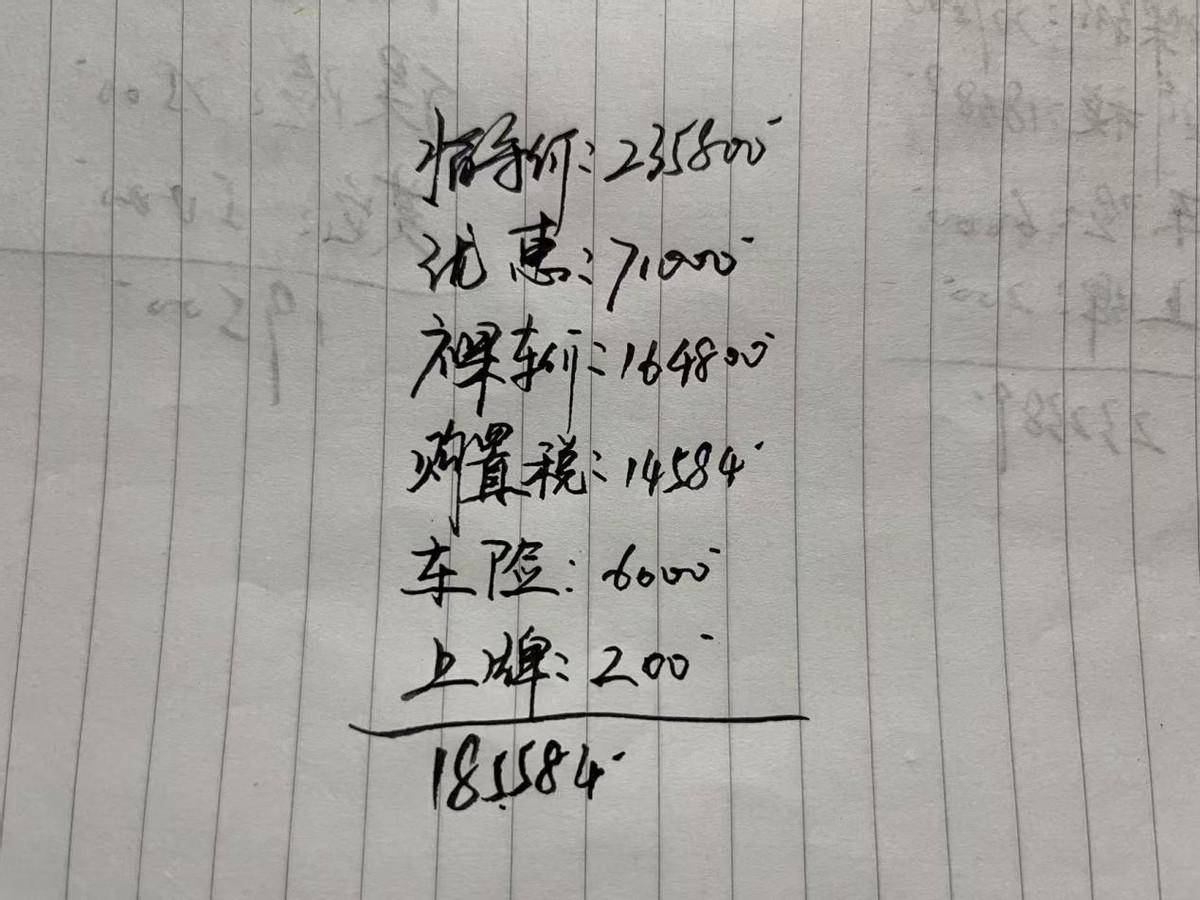 指导价:235800
优惠:71000
裸车价:164800
购置税:14584
车险:6000
上牌:200
185584